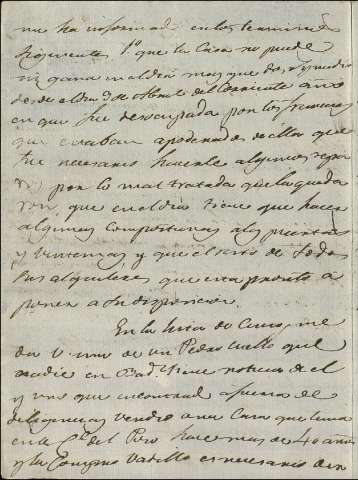 me ha informado en los terminos
siguientes 1º que la Casa no puede
ni gana en el dia mas que dos y medio
desde el dia 9 de Abril del corriente año
en que fue desocupada por los franceses
que estaban apoderados de ella: que
fue necesario hacerle algunos repa
ros por lo mal tratada que la queda
ron, que en el dia tiene que hacer
algunas composturas a las puertas
y ventanas y que el resto de todos
sus alquileres que esta pronto a
poner a su disposicion.
En la lista de me
da V. uno de un Pedro Cuello que
nadie en Bad tiene noticia de el
y uno que encontrado a fuerza de
diligencias vendio a una Casa que tenia
en la Cl. del Pozo hace mas de 40 años
y la Compro Vadillo es necesario